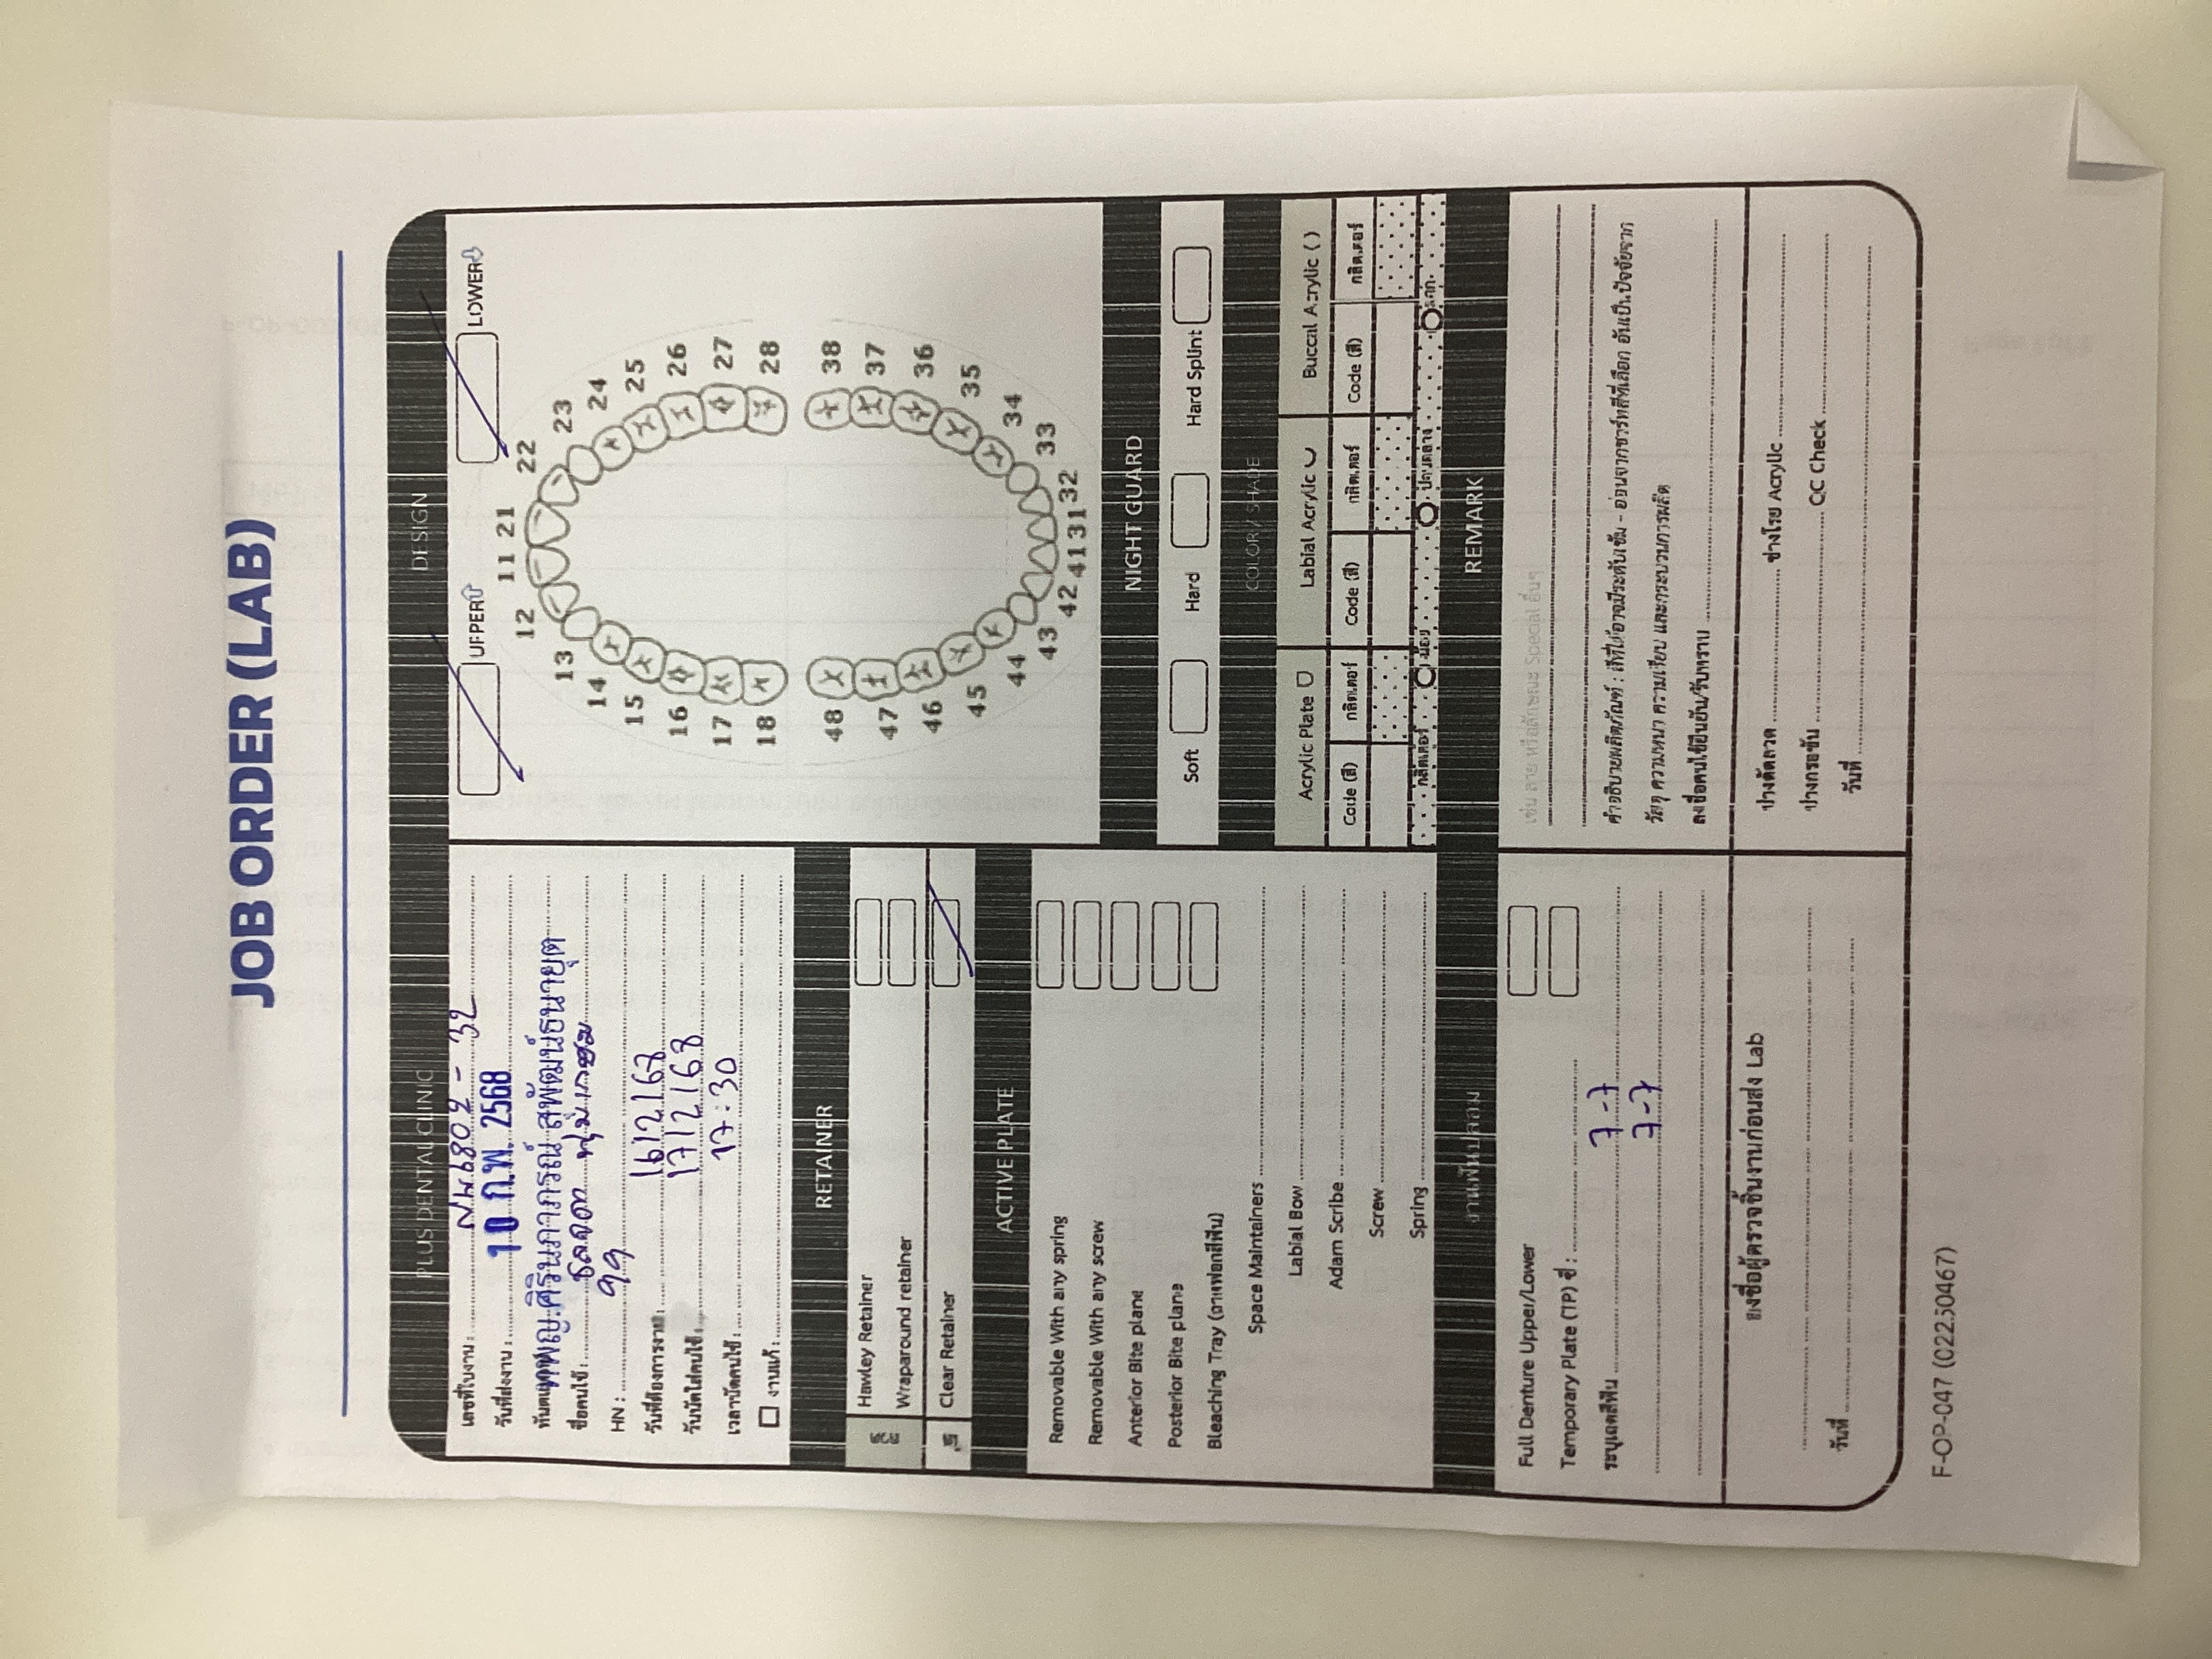 JOB ORDER (LAB)
PLUS DENTAL CLINIC
เลขที่ใบงาน : 6802 - 32
วันที่ส่งงาน : 10 ก.พ. 2568
ทพญ.ศิรินภาภรณ์ สุพัฒน์ธนายุต
ชื่อคนไข้ :
HN : 99
วันที่ต้องการงาน : 16/2/68
วันนัดใส่คนไข้ : 17/2/68
เวลานัดคนไข้ : 17:30
งานแก้ :
RETAINER
ลวด
Hawley Retainer
Wraparound retainer
ใส
Clear Retainer
ACTIVE PLATE
Removable With any spring
Removable With any screw
Anterior Bite plane
Posterior Bite plane
Bleaching Tray (ถาดฟอกสีฟัน)
Space Maintainers
Labial Bow
Adam Scribe
Screw
Spring
งานฟันปลอม
Full Denture Upper/Lower
Temporary Plate (TP) ซี่ :
ระบุเฉดสีฟัน 7-7
7-7
ลงชื่อผู้ตรวจชิ้นงานก่อนส่ง Lab
วันที่
DESIGN
UPPER LOWER
11 21
12 22
13 23
14 24
15 25
16 26
17 27
18 28
48 38
47 37
46 36
45 35
44 34
43 33
42 41 31 32
NIGHT GUARD
Soft Hard Hard Splint
COLOR / SHADE
Acrylic Plate Labial Acrylic Buccal Acrylic ( )
Code (สี) กลิตเตอร์ Code (สี) กลิตเตอร์ Code (สี) กลิตเตอร์
กลิตเตอร์ น้อย ปานกลาง มาก
REMARK
เช่น ลาย หรือลักษณะ Special อื่นๆ
คำอธิบายผลิตภัณฑ์ : สีที่ได้อาจมีระดับเข้ม - อ่อนจากชาร์ทสีที่เลือก อันเป็นปัจจัยจาก
วัสดุ ความหนา ความเรียบ และกระบวนการผลิต
ลงชื่อคนไข้ยืนยัน/รับทราบ
ช่างดัดลวด ช่างโรย Acrylic
ช่างกรอขัน QC Check
วันที่
F-OP-047 (02250467)